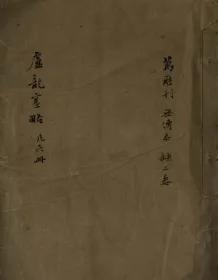 萬曆刊 無傳本 缺二卷
盧龍塞略 凡六冊